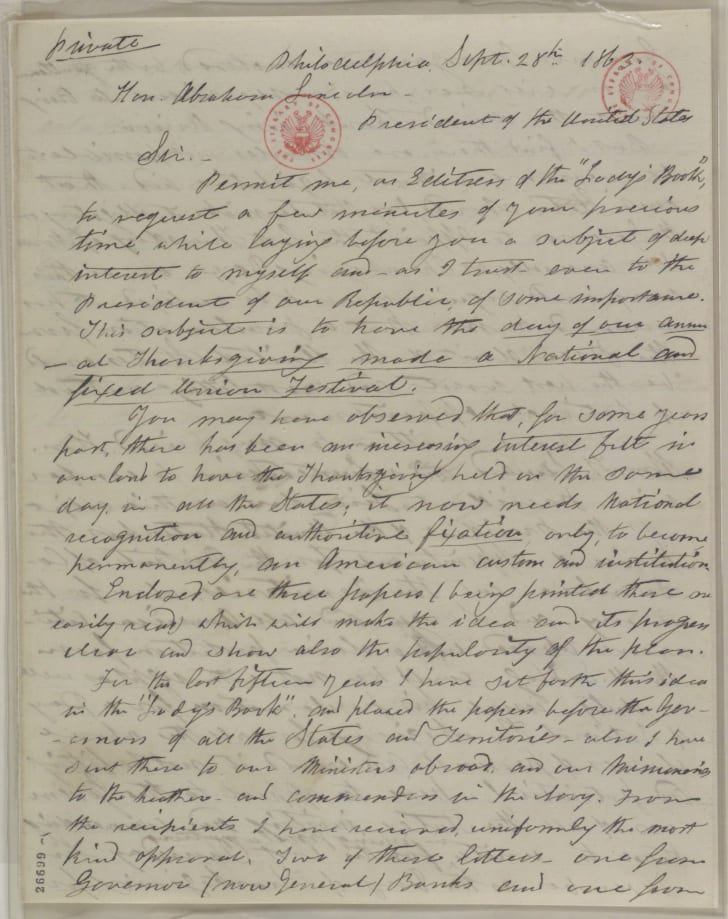 private
Philadelphia, Sept. 28th 1863.
Hon. Abraham Lincoln -
President of the United States
Sir. -
Permit me, as Editress of the "Lady's Book",
to request a few minutes of your precious
time, while laying before you a subject of deep
interest to myself and - as I trust - even to the
President of our Republic, of some importance.
This subject is to have the day of our annu-
-al Thanksgiving made a National and
fixed Union Festival.
You may have observed that, for some years
past, there has been an increasing interest felt in
our land to have the Thanksgiving held on the same
day, in all the States; it now needs National
recognition and authoritive fixation, only, to become
permanently, an American custom and institution.
Enclosed are three papers (being printed these are
easily read) which will make the idea and its progress
clear and show also the popularity of the plan.
For the last fifteen years I have set forth this idea
in the "Lady's Book", and placed the papers before the Gov-
-ernors of all the States and Territories - also I have
sent these to our Ministers abroad, and our Missionaries
to the heathen - and commanders in the Navy. From
the recipients I have received, uniformly the most
kind approval. Two of these letters, one from
Governor (now General) Banks and one from
26699
THE LIBRARY OF CONGRESS